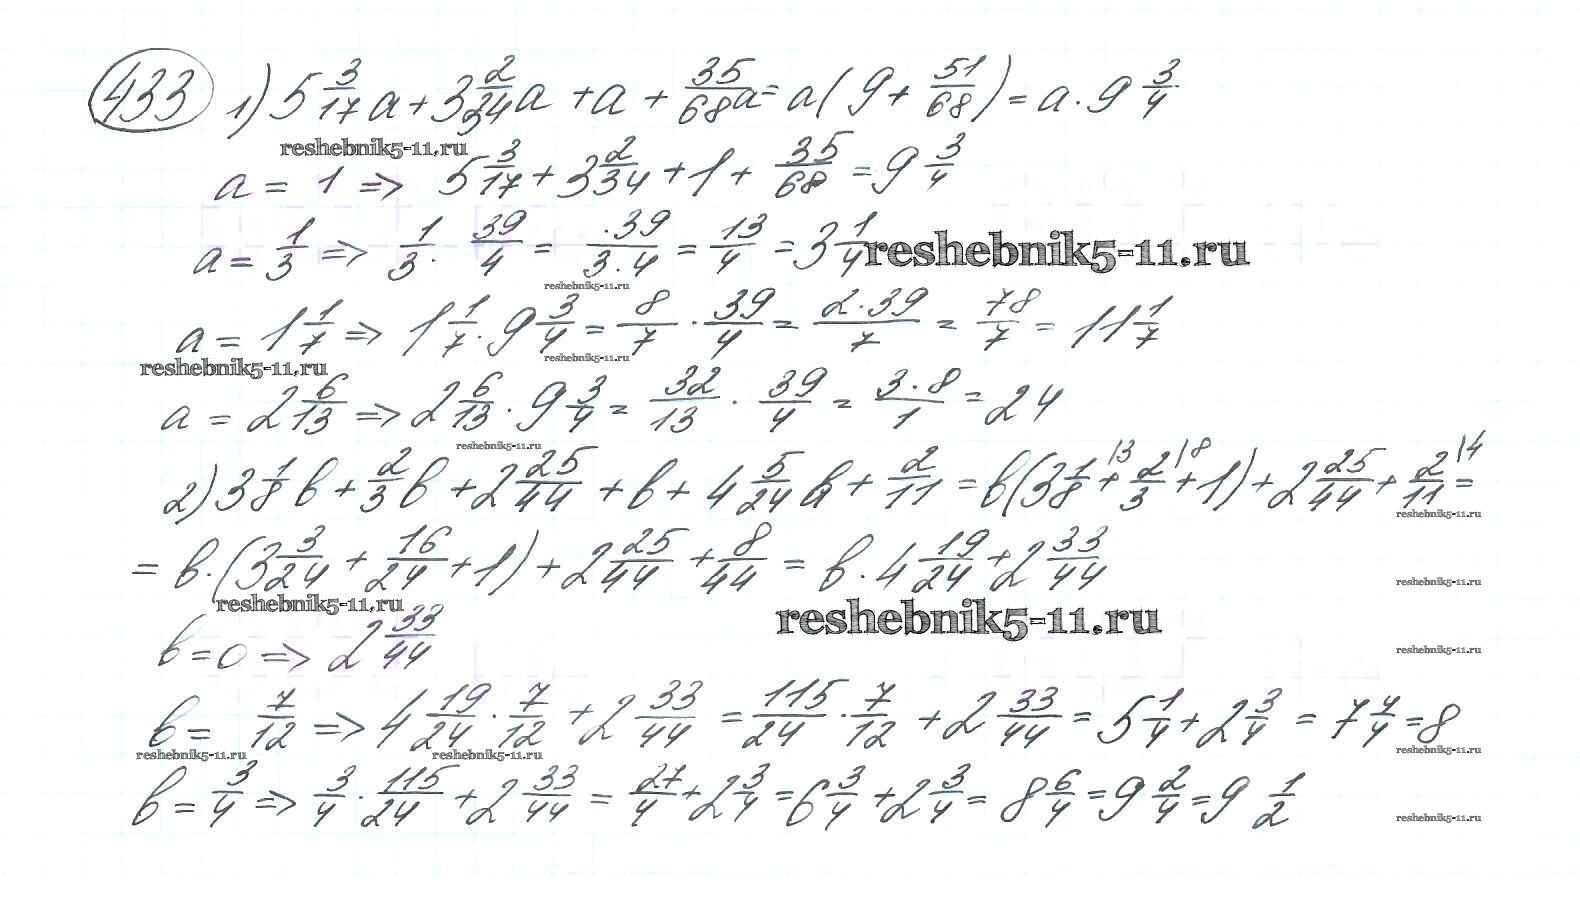 433 1) 5 3/17 a + 3 2/34 a + a + 35/68 a = a(9 + 51/68) = a · 9 3/4
reshebnik5-11.ru
a = 1 => 5 3/17 + 3 2/34 + 1 + 35/68 = 9 3/4
a = 1/3 => 1/3 · 39/4 = ·39/3·4 = 13/4 = 3 1/4
reshebnik5-11.ru
reshebnik5-11.ru
a = 1 1/7 => 1 1/7 · 9 3/4 = 8/7 · 39/4 = 2·39/7 = 78/7 = 11 1/7
reshebnik5-11.ru
reshebnik5-11.ru
a = 2 6/13 => 2 6/13 · 9 3/4 = 32/13 · 39/4 = 3·8/1 = 24
reshebnik5-11.ru
2) 3 1/8 b + 2/3 b + 2 25/44 + b + 4 5/24 b + 2/11 = b(3 1/8 \3 + 2/3 \8 + 1) + 2 25/44 + 2/11 \4 =
reshebnik5-11.ru
= b · (3 3/24 + 16/24 + 1) + 2 25/44 + 8/44 = b · 4 19/24 + 2 33/44
reshebnik5-11.ru
reshebnik5-11.ru
reshebnik5-11.ru
b = 0 => 2 33/44
reshebnik5-11.ru
b = 7/12 => 4 19/24 · 7/12 + 2 33/44 = 115/24 · 7/12 + 2 33/44 = 5 1/4 + 2 3/4 = 7 4/4 = 8
reshebnik5-11.ru
reshebnik5-11.ru
reshebnik5-11.ru
b = 3/4 => 3/4 · 115/24 + 2 33/44 = 27/4 + 2 3/4 = 6 3/4 + 2 3/4 = 8 6/4 = 9 2/4 = 9 1/2
reshebnik5-11.ru